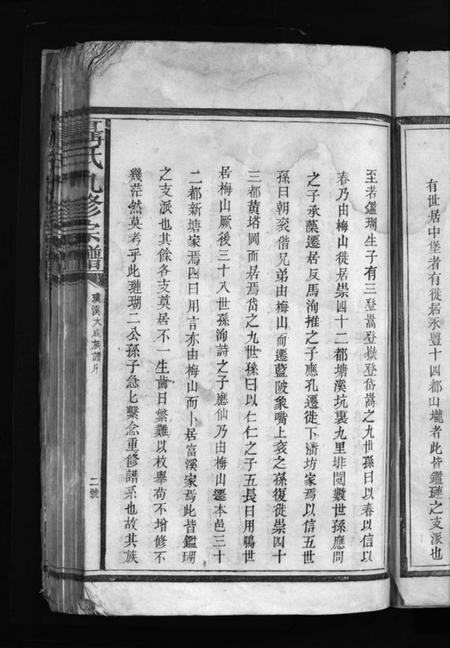 有世居中堡者有徙居永豐十四都山壠者此皆鑑璉之支派也
至若鑑瑚生子有三登嵩登嶽登岱嵩之九世孫曰以春以信以
春乃由梅山徙居崇四十二都塘溪坑裏九里排閱數世孫應問
之子承藻遷居反馬洵推之子應孔遷徙下濟坊家焉以信五世
孫曰朝袞偕兄弟由梅山而遷藍陂象嘴上袞之孫復徙崇四十
三都黃塔岡而居焉岱之九世孫曰以仁仁之子五長曰用鴨世
居梅山厥後三十八世孫洵詩之子應仙乃由梅山遷本邑三十
二都新塘家焉四曰用言亦由梅山而卜居富溪家焉此皆鑑瑚
之支派也其餘各支奠居不一生齒日繁難以枚舉苟不增修不
幾茫然莫考乎此璉瑚二公孫子急匕繫念重修譜系也故其族
氏九修宗譜
璜溪大成族譜序
二號